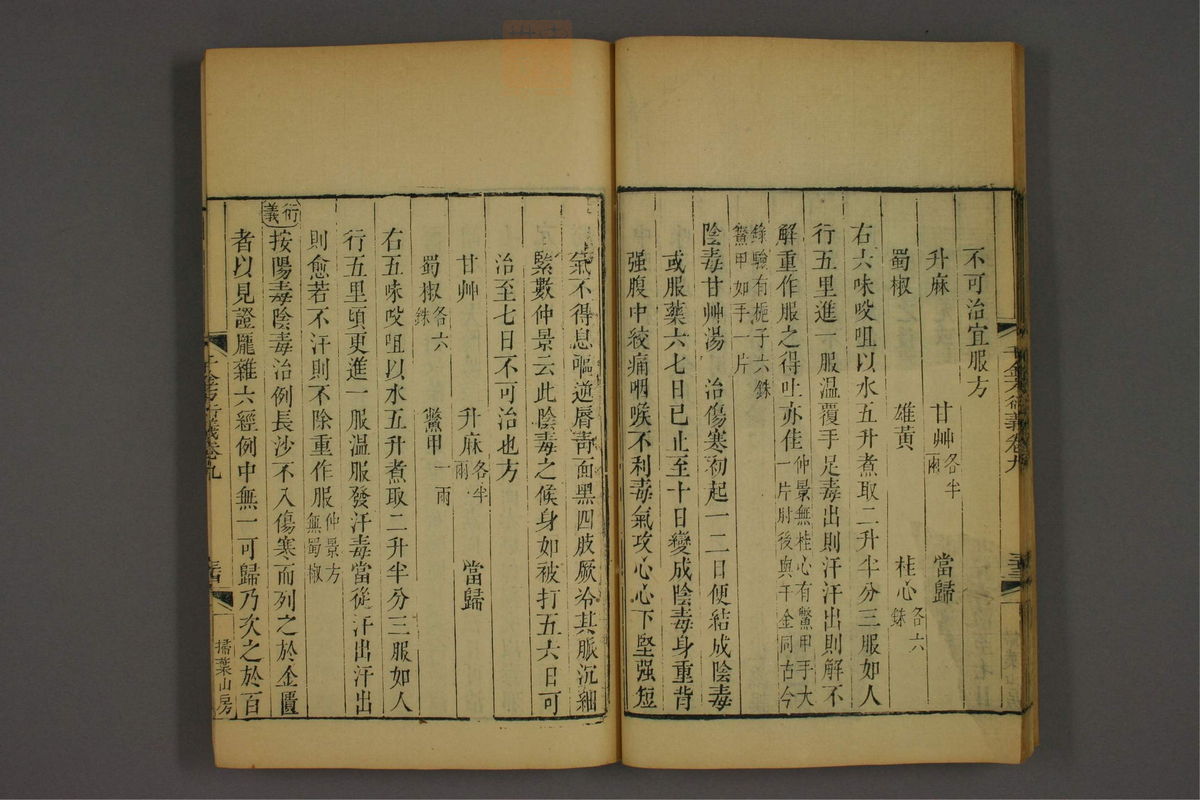 不可治宜服方
升麻 甘艸各半兩 當歸
蜀椒 雄黃 桂心各六銖
右六味㕮咀以水五升煮取二升半分三服如人
行五里進一服温覆手足毒出則汗汗出則解不
解重作服之得吐亦佳仲景無桂心有鱉甲手大一片肘後與千金同古今
錄驗有梔子六銖鱉甲如手一片
陰毒甘艸湯 治傷寒初起一二日便結成陰毒
或服藥六七日已止至十日變成陰毒身重背
强腹中絞痛咽喉不利毒氣攻心心下堅强短
氣不得息嘔逆脣靑面黑四肢厥冷其脈沉細
緊數仲景云此陰毒之候身如被打五六日可
治至七日不可治也方
甘艸 升麻各半兩 當歸
蜀椒各六銖 鱉甲一兩
右五味㕮咀以水五升煮取二升半分三服如人
行五里頃更進一服温服發汗毒當從汗出汗出
則愈若不汗則不除重作服仲景方無蜀椒
衍義按陽毒陰毒治例長沙不入傷寒而列之於金匱
者以見證龎雜六經例中無一可歸乃次之於百
千金方衍義卷九
三三
千金方衍義卷九
三四
掃葉山房